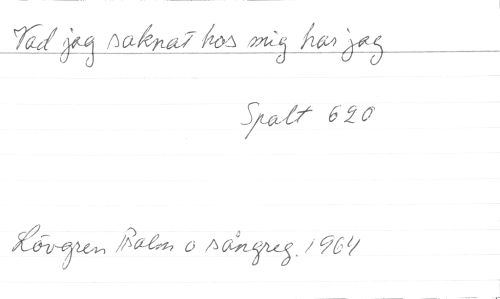 Vad jag saknat hos mig har jag
Spalt 620
Lövgren Psalm o sångreg. 1964